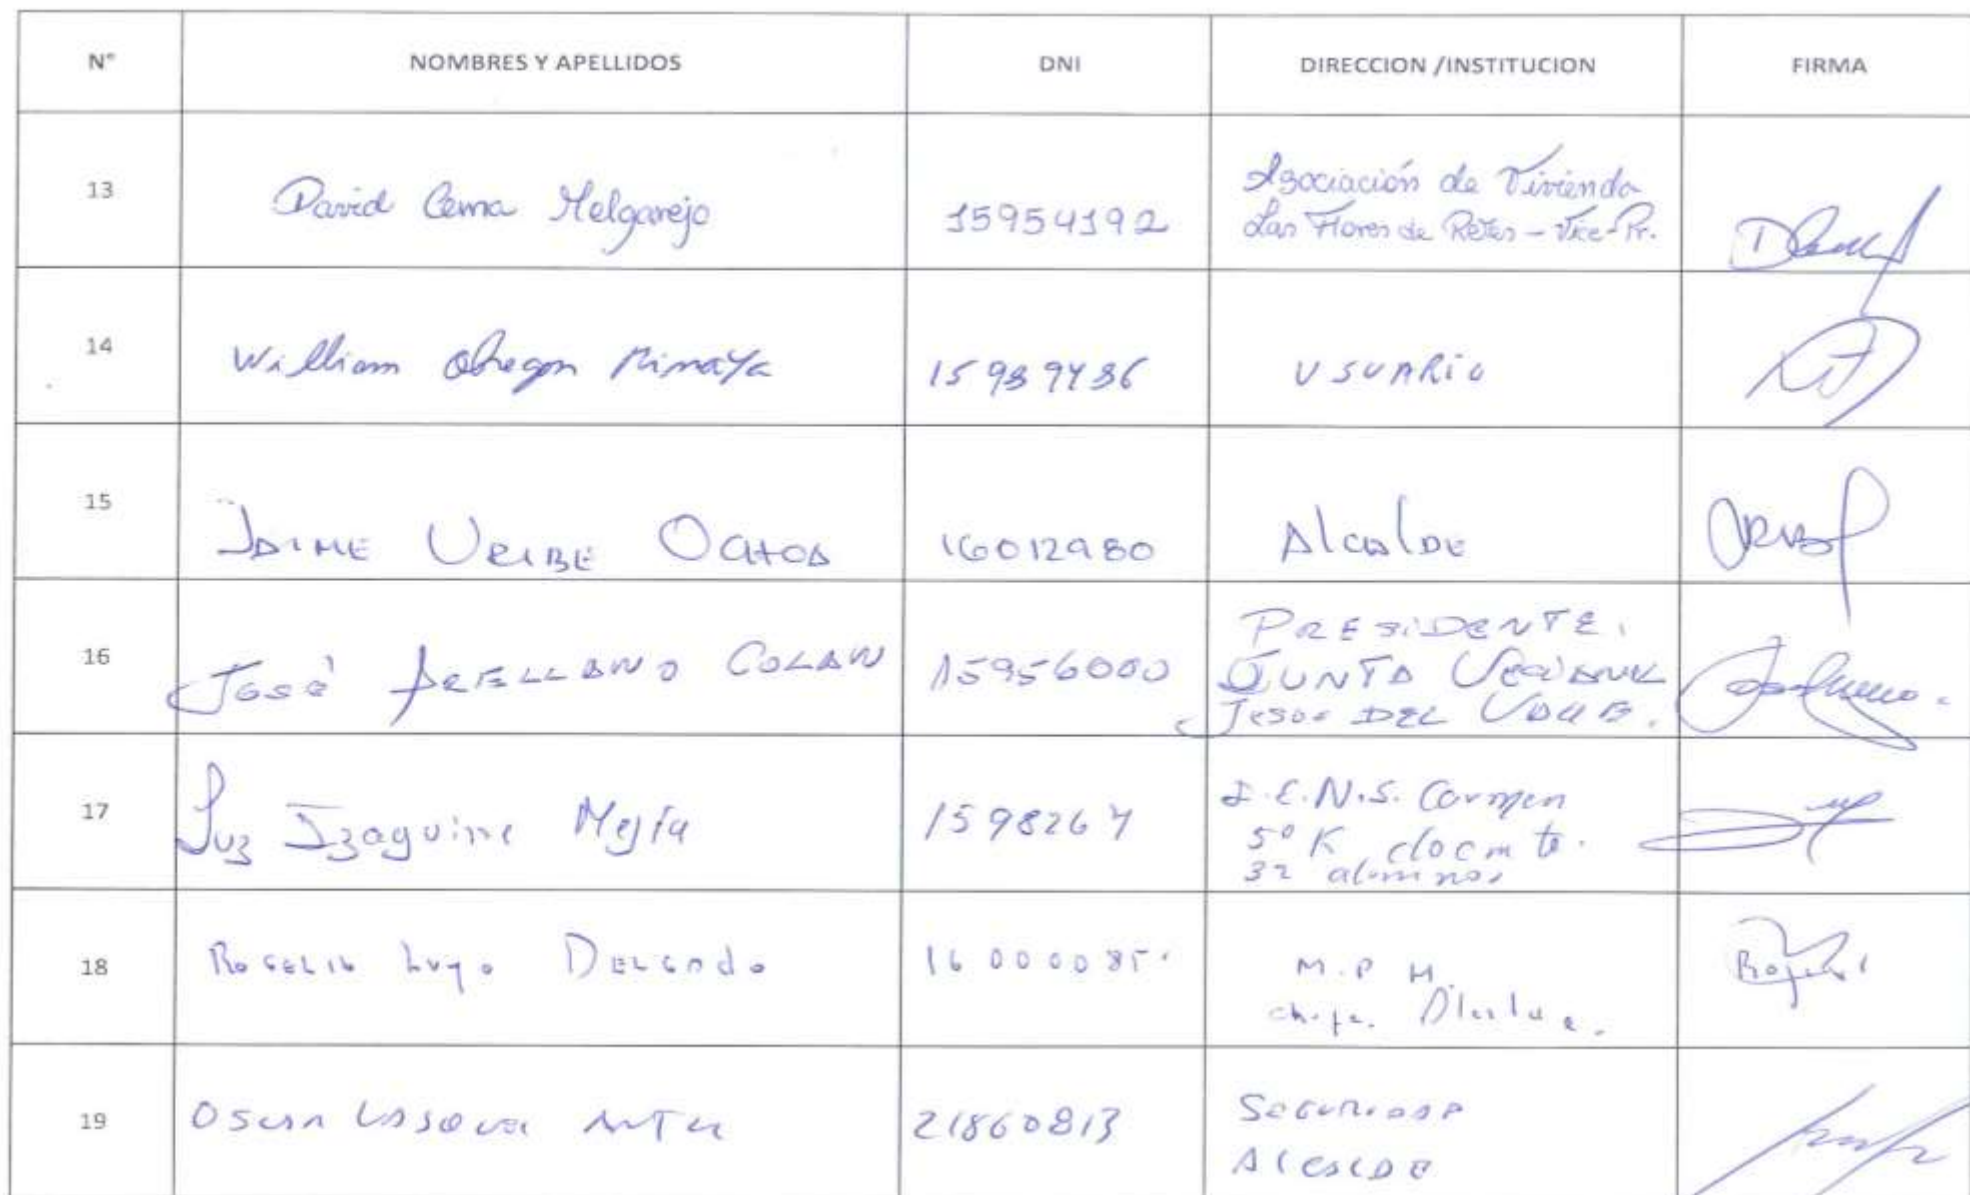 N° NOMBRES Y APELLIDOS DNI DIRECCION /INSTITUCION FIRMA
13 David Cerna Melgarejo 15954192 Asociación de Vivienda
Las Flores de Retes - Vice-Pr.
14 William Obregon Rimayа USUARIO
15 JAIME URIBE OCHOA 16012980 Alcalde
16 José ARELLANO COLAN 15956000 PRESIDENTE.
JUNTA VECINAL
JESUS DEL VALLE.
17 Luz Izaguirre Mejía 1598264 I.E.N.S. Carmen
5° K docente.
32 alumnos
18 ROGELIO Lugo DELGADO M.P H.
19 OSCAR 21860813 SEGURIDAD
ALCALDE